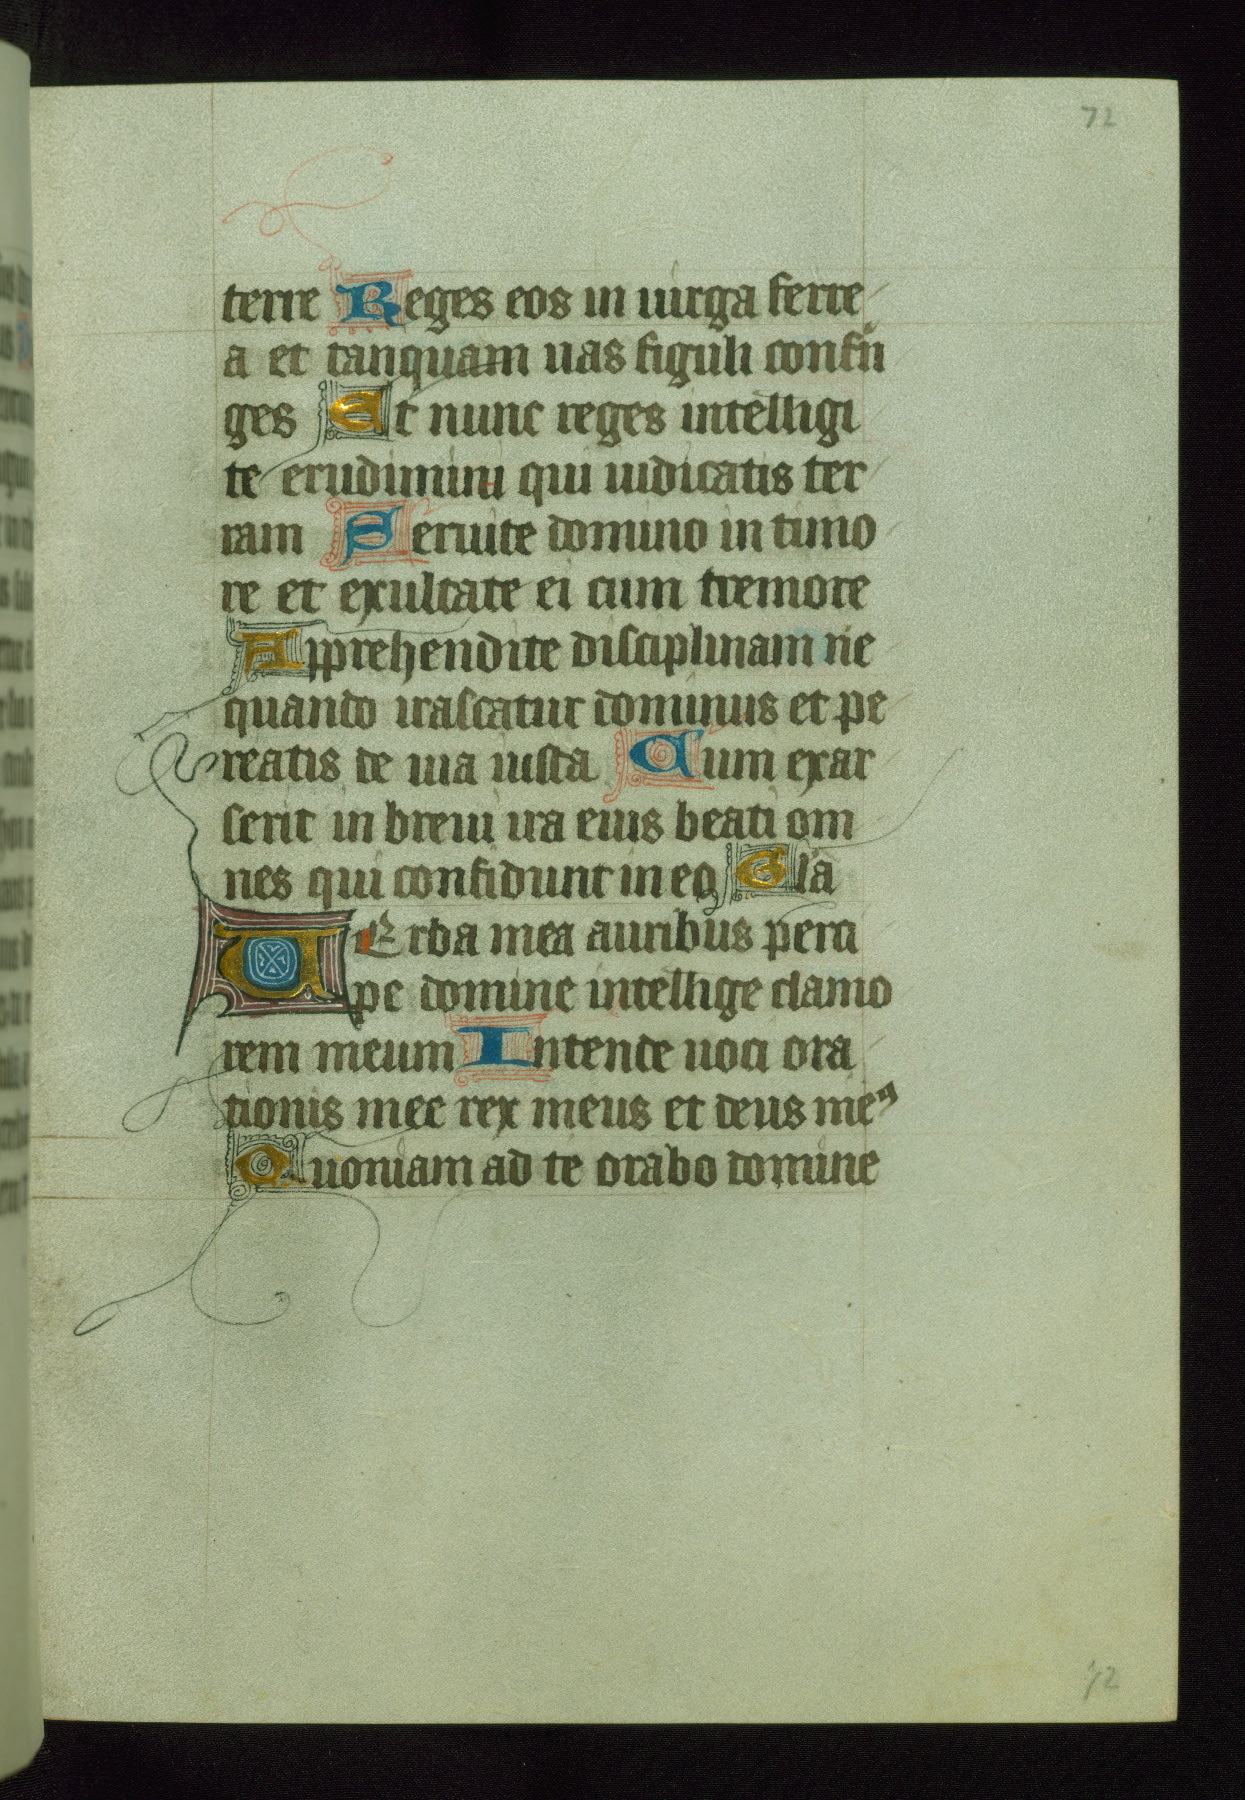 72
terre Reges eos in uirga ferre
a et tanquam uas figuli confri
ges Et nunc reges intelligi
te erudimini qui iudicatis ter
ram Seruite domino in timo
re et exultate ei cum tremore
Apprehendite disciplinam ne
quando irascatur dominus et pe
reatis de uia iusta Cum exar
serit in breui ira eius beati om
nes qui confidunt in eo Gla
VErba mea auribus perci
pe domine intellige clamo
rem meum Intende uoci ora
tionis mee rex meus et deus meꝰ
Quoniam ad te orabo domine
72